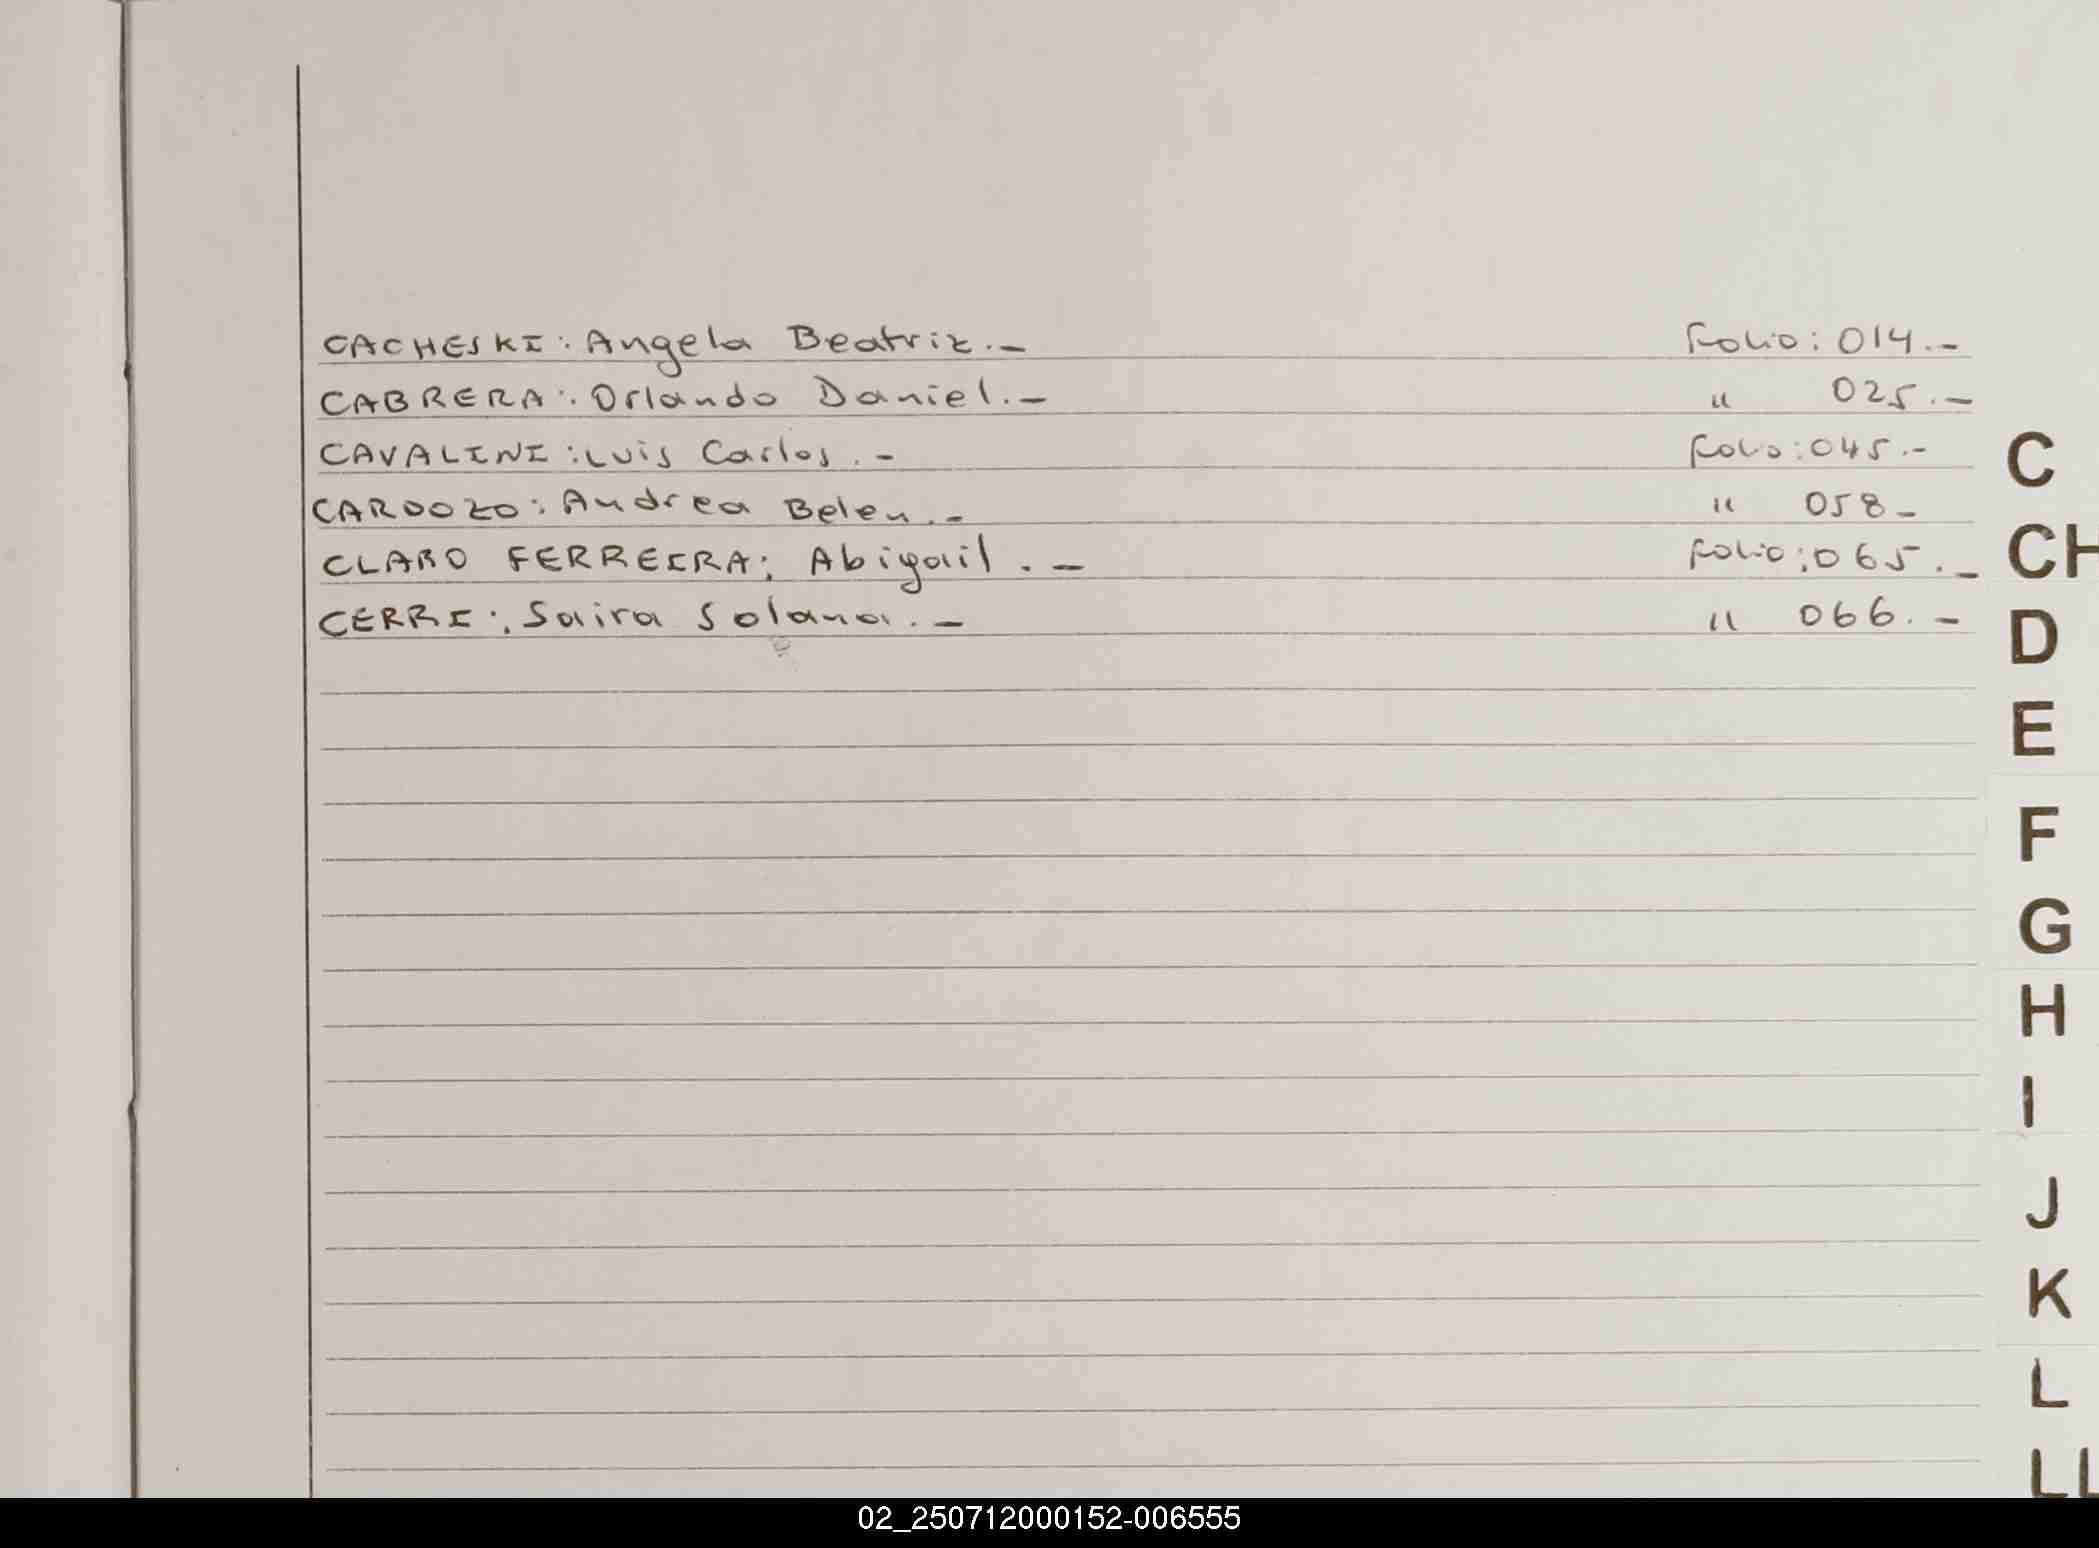 CACHESKI: Angela Beatriz.- Folio: 014.-
CABRERA: Orlando Daniel.- " 025.-
CAVALINI: Luis Carlos.- Folio: 045.-
CARDOZO: Andrea Belen.- " 058-
CLARO FERREIRA: Abigail.- Folio: 065.-
CERRI: Saira Solana.- " 066.-
C
CH
D
E
F
G
H
I
J
K
L
LL
02_250712000152-006555